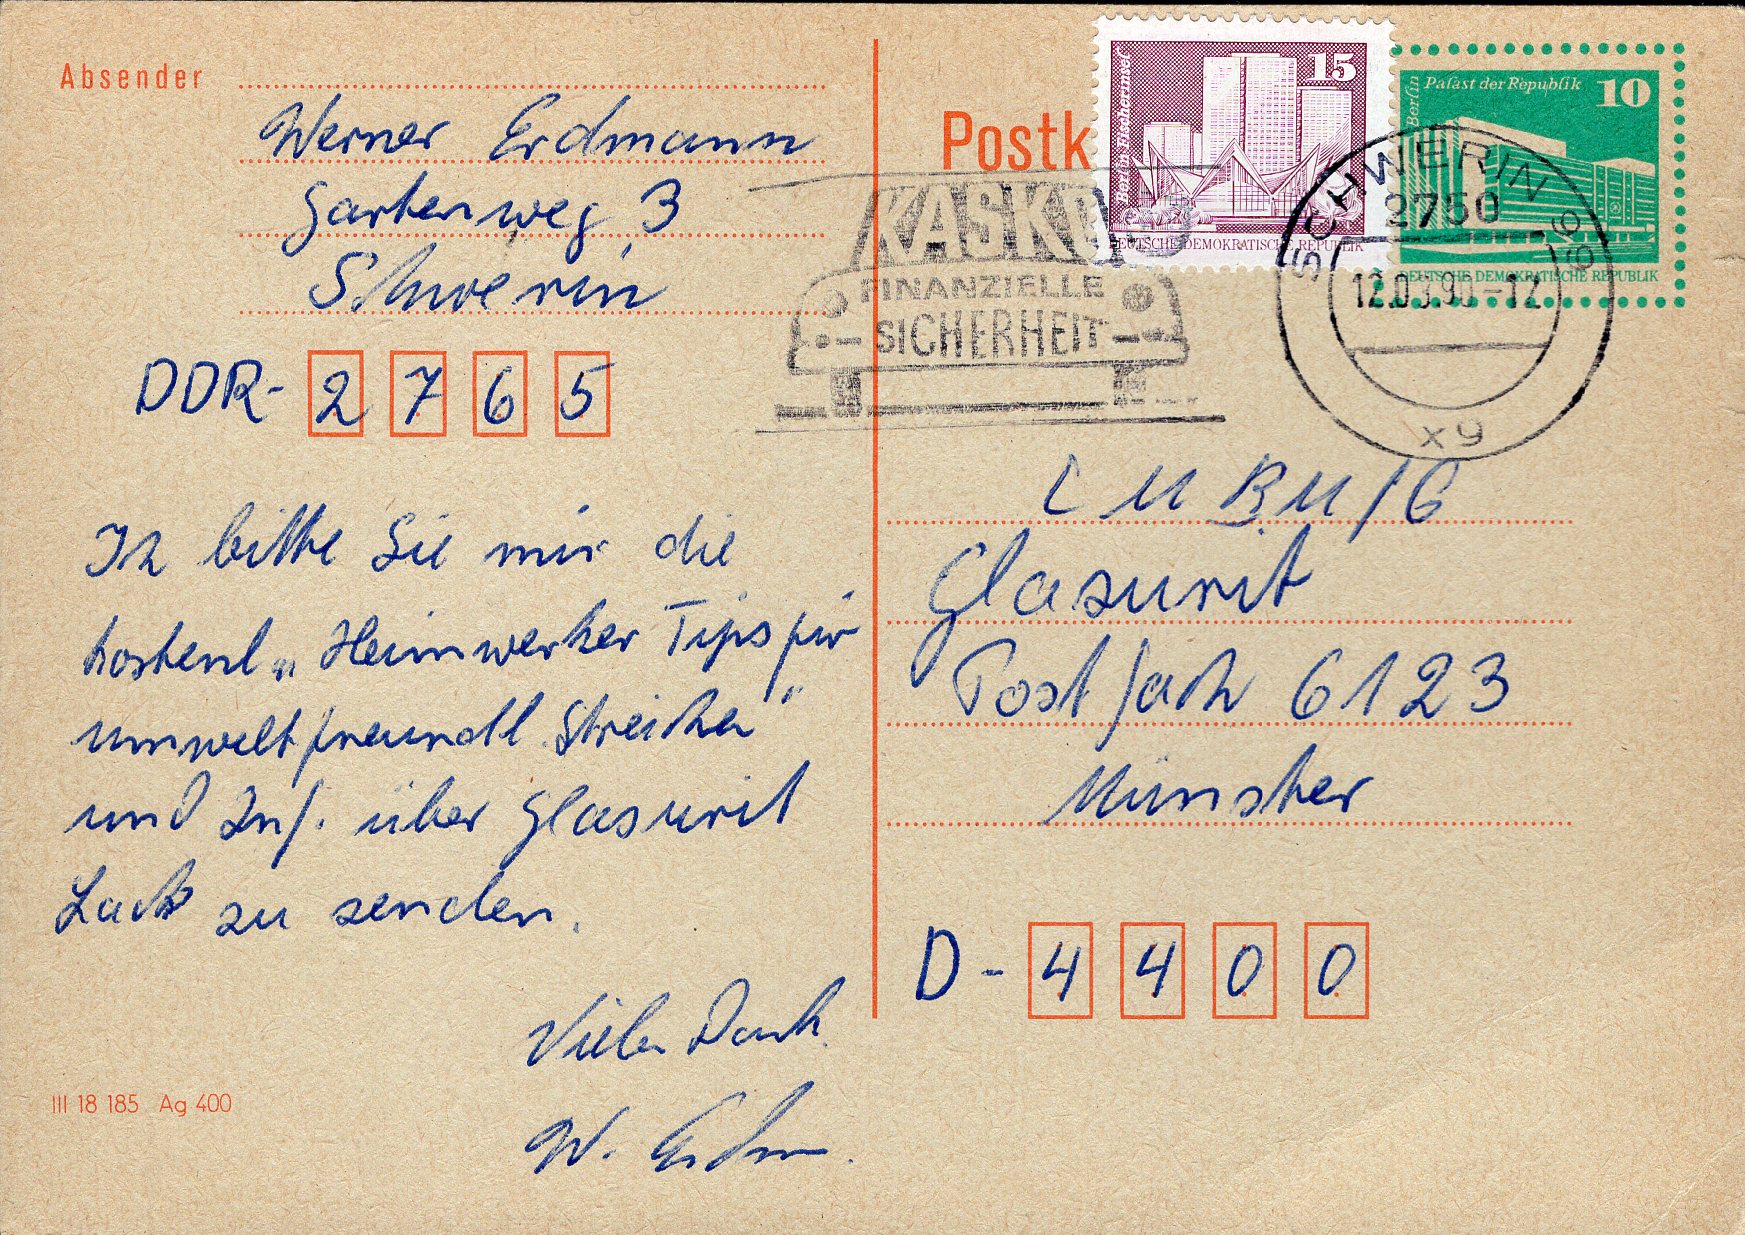 Absender
Werner Erdmann
Gartenweg 3
Schwerin
DDR- 2 7 6 5
Ich bitte Sie mir die
kostenl. „Heimwerker Tips für
umweltfreundl. Streichen"
und Inf. über Glasurit
Lack zu senden.
Vielen Dank
W. Erdm
III 18 185 Ag 400
Postk
15
Berlin Fischerinsel
DEUTSCHE DEMOKRATISCHE REPUBLIK
Berlin
Palast der Republik
10
DEUTSCHE DEMOKRATISCHE REPUBLIK
KASKO
FINANZIELLE
SICHERHEIT
SCHWERIN
2750
12.09.90-12
xy
Glasurit
Postfach 6123
Münster
D - 4 4 0 0